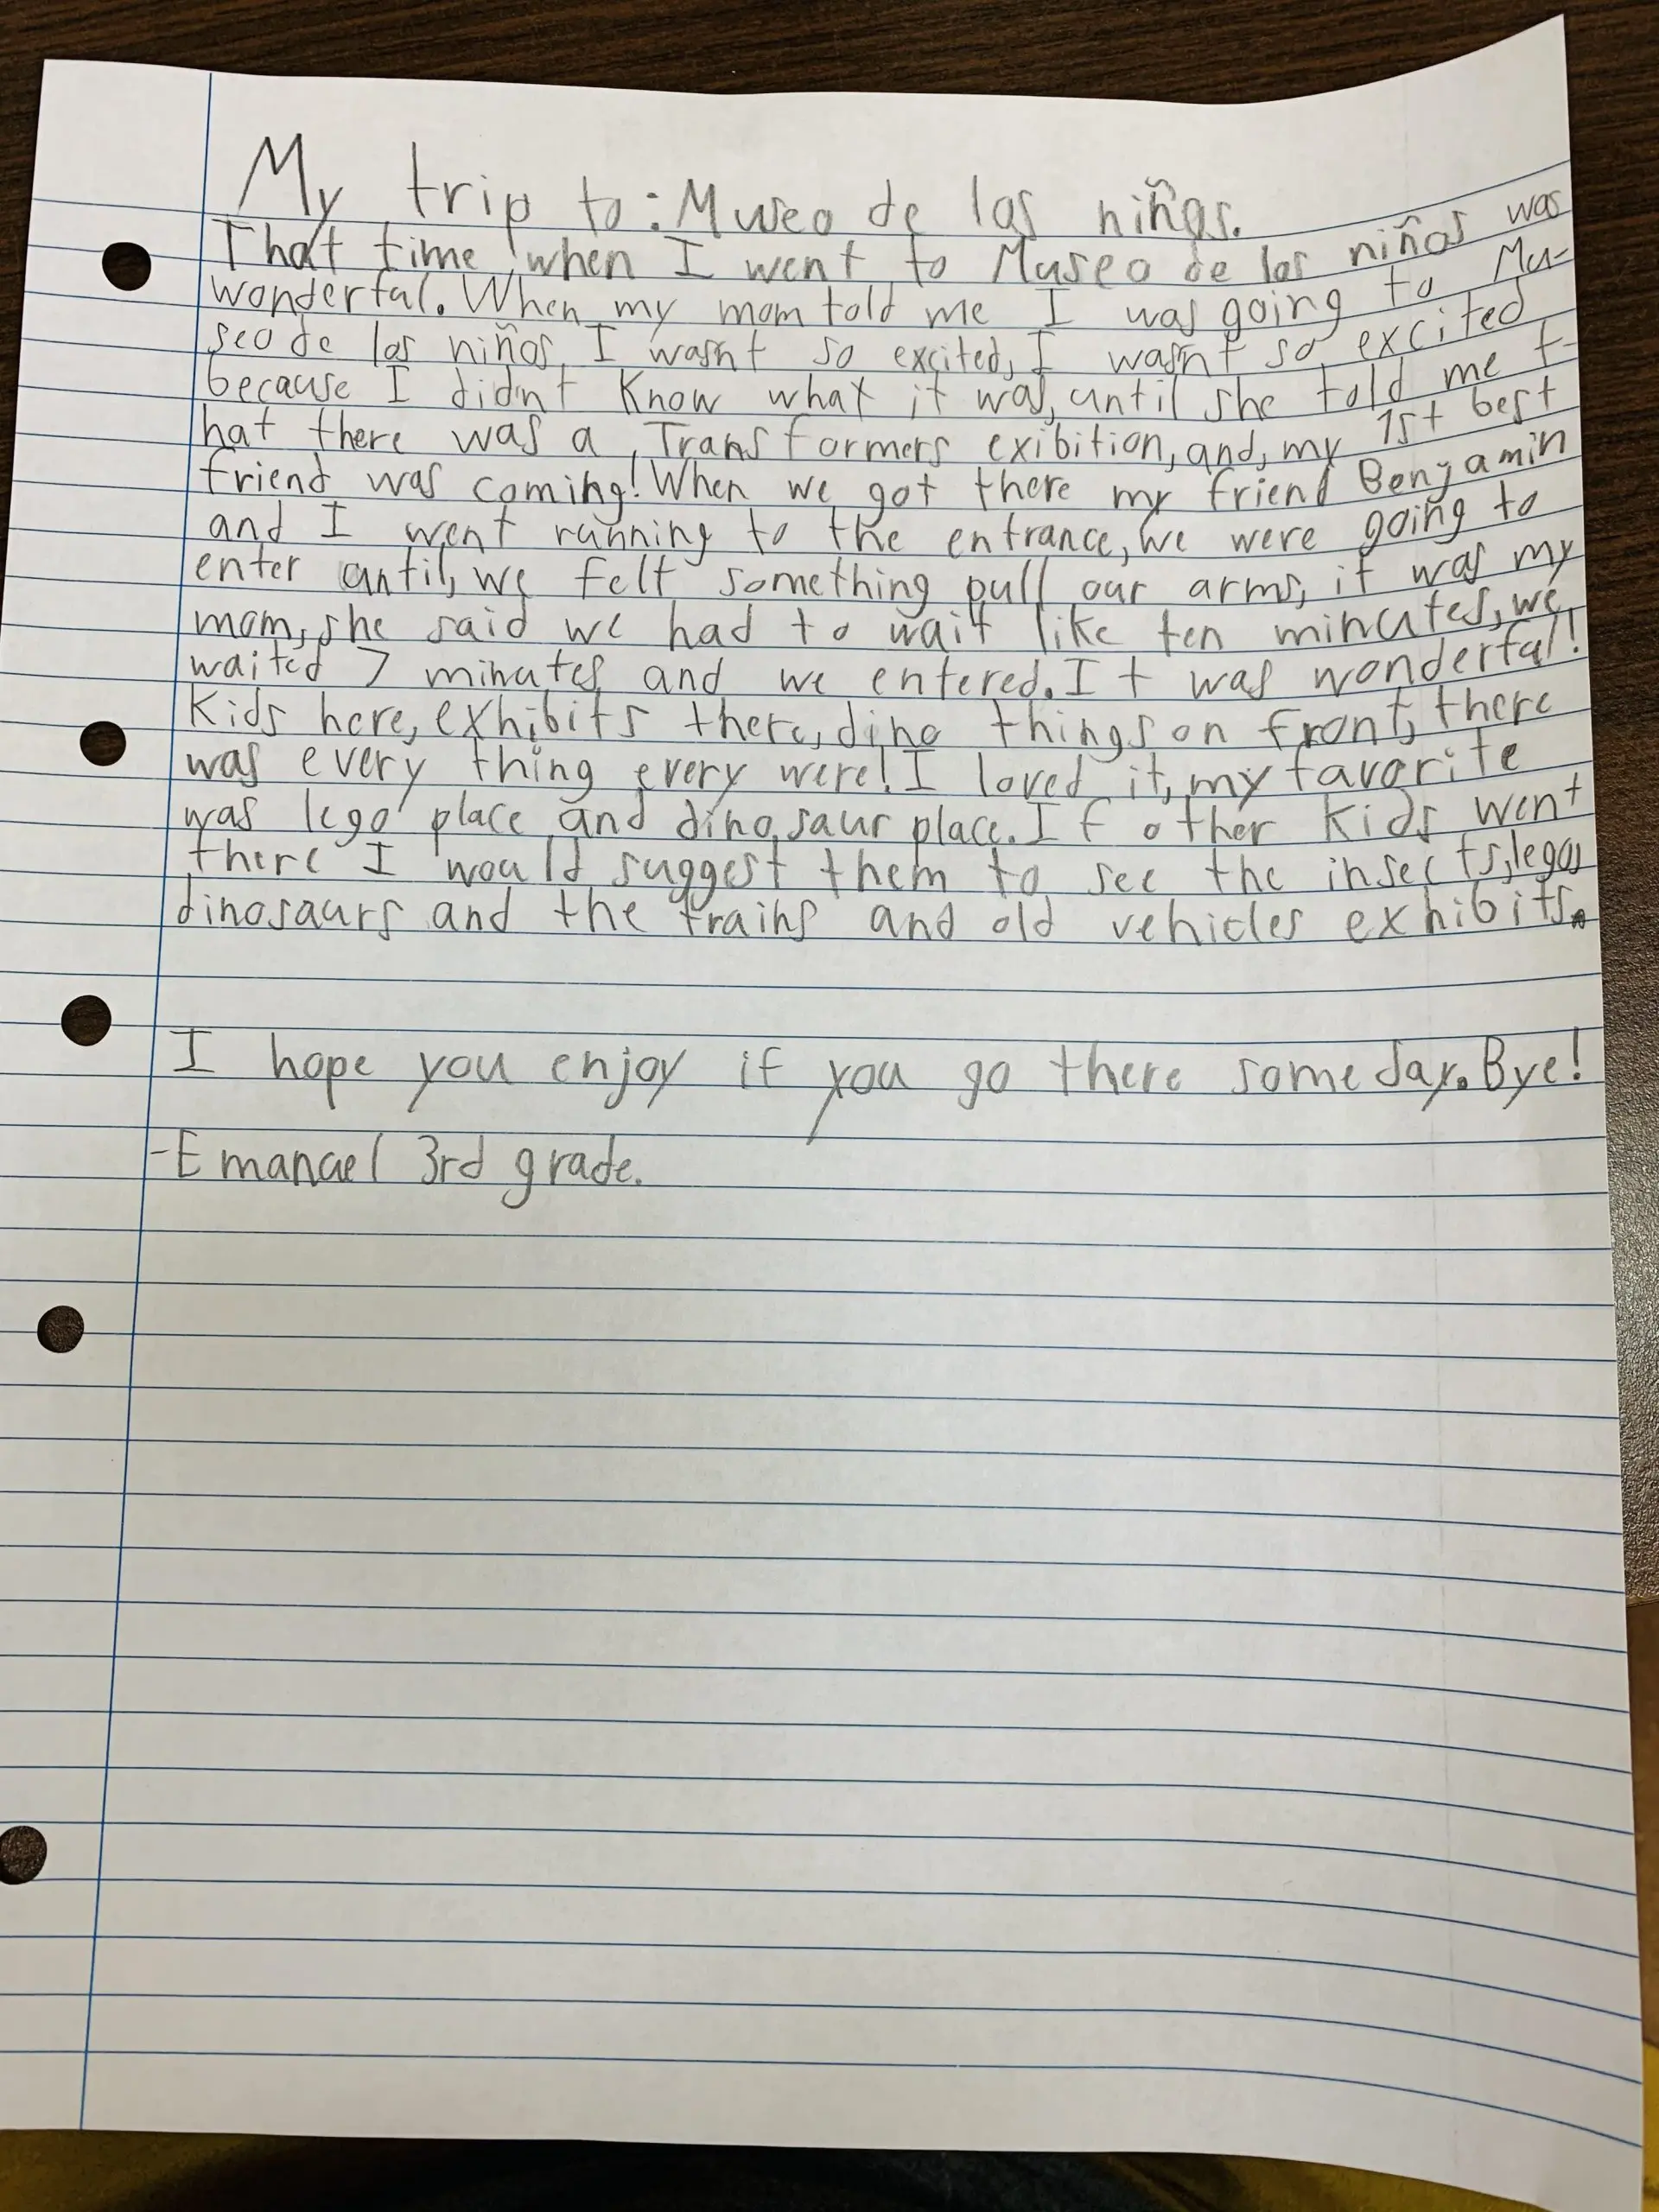 My trip to: Museo de los niños.
That time when I went to Museo de los niños was
wonderful. When my mom told me I was going to Mu-
seo de los niños, I wasn't so excited, I wasn't so excited
because I didn't know what it was, until she told me t-
hat there was a, Transformers exibition, and, my 1st best
friend was coming! When we got there my friend Benyamin
and I went running to the entrance, we were going to
enter until, we felt something pull our arms, it was my
mom, she said we had to wait like ten minutes, we
waited 7 minutes and we entered. It was wonderful!
Kids here, exhibits there, dino things on front, there
was every thing every were! I loved it, my favorite
was lego place and dinosaur place. If other kids went
there I would suggest them to see the insects, legos
dinosaurs and the trains and old vehicles exhibits.
I hope you enjoy if you go there someday. Bye!
-Emanuel 3rd grade.